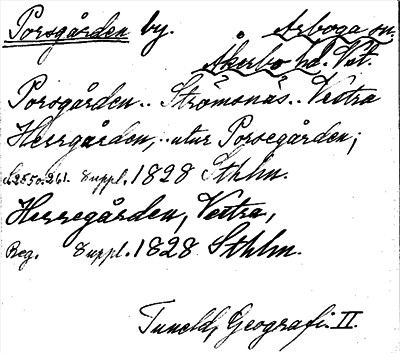 Porsgården by. Arboga sn.
Åkerbo hd. Vstm.
Porsgården.. Strömsnäs.. Vestra
Herrgården,.. utur Porsegården;
s. 250o.261. Suppl. 1828 Sthlm.
Herregården, Vestra,
Reg. Suppl. 1828 Sthlm.
Tuneld, Geografi. II.